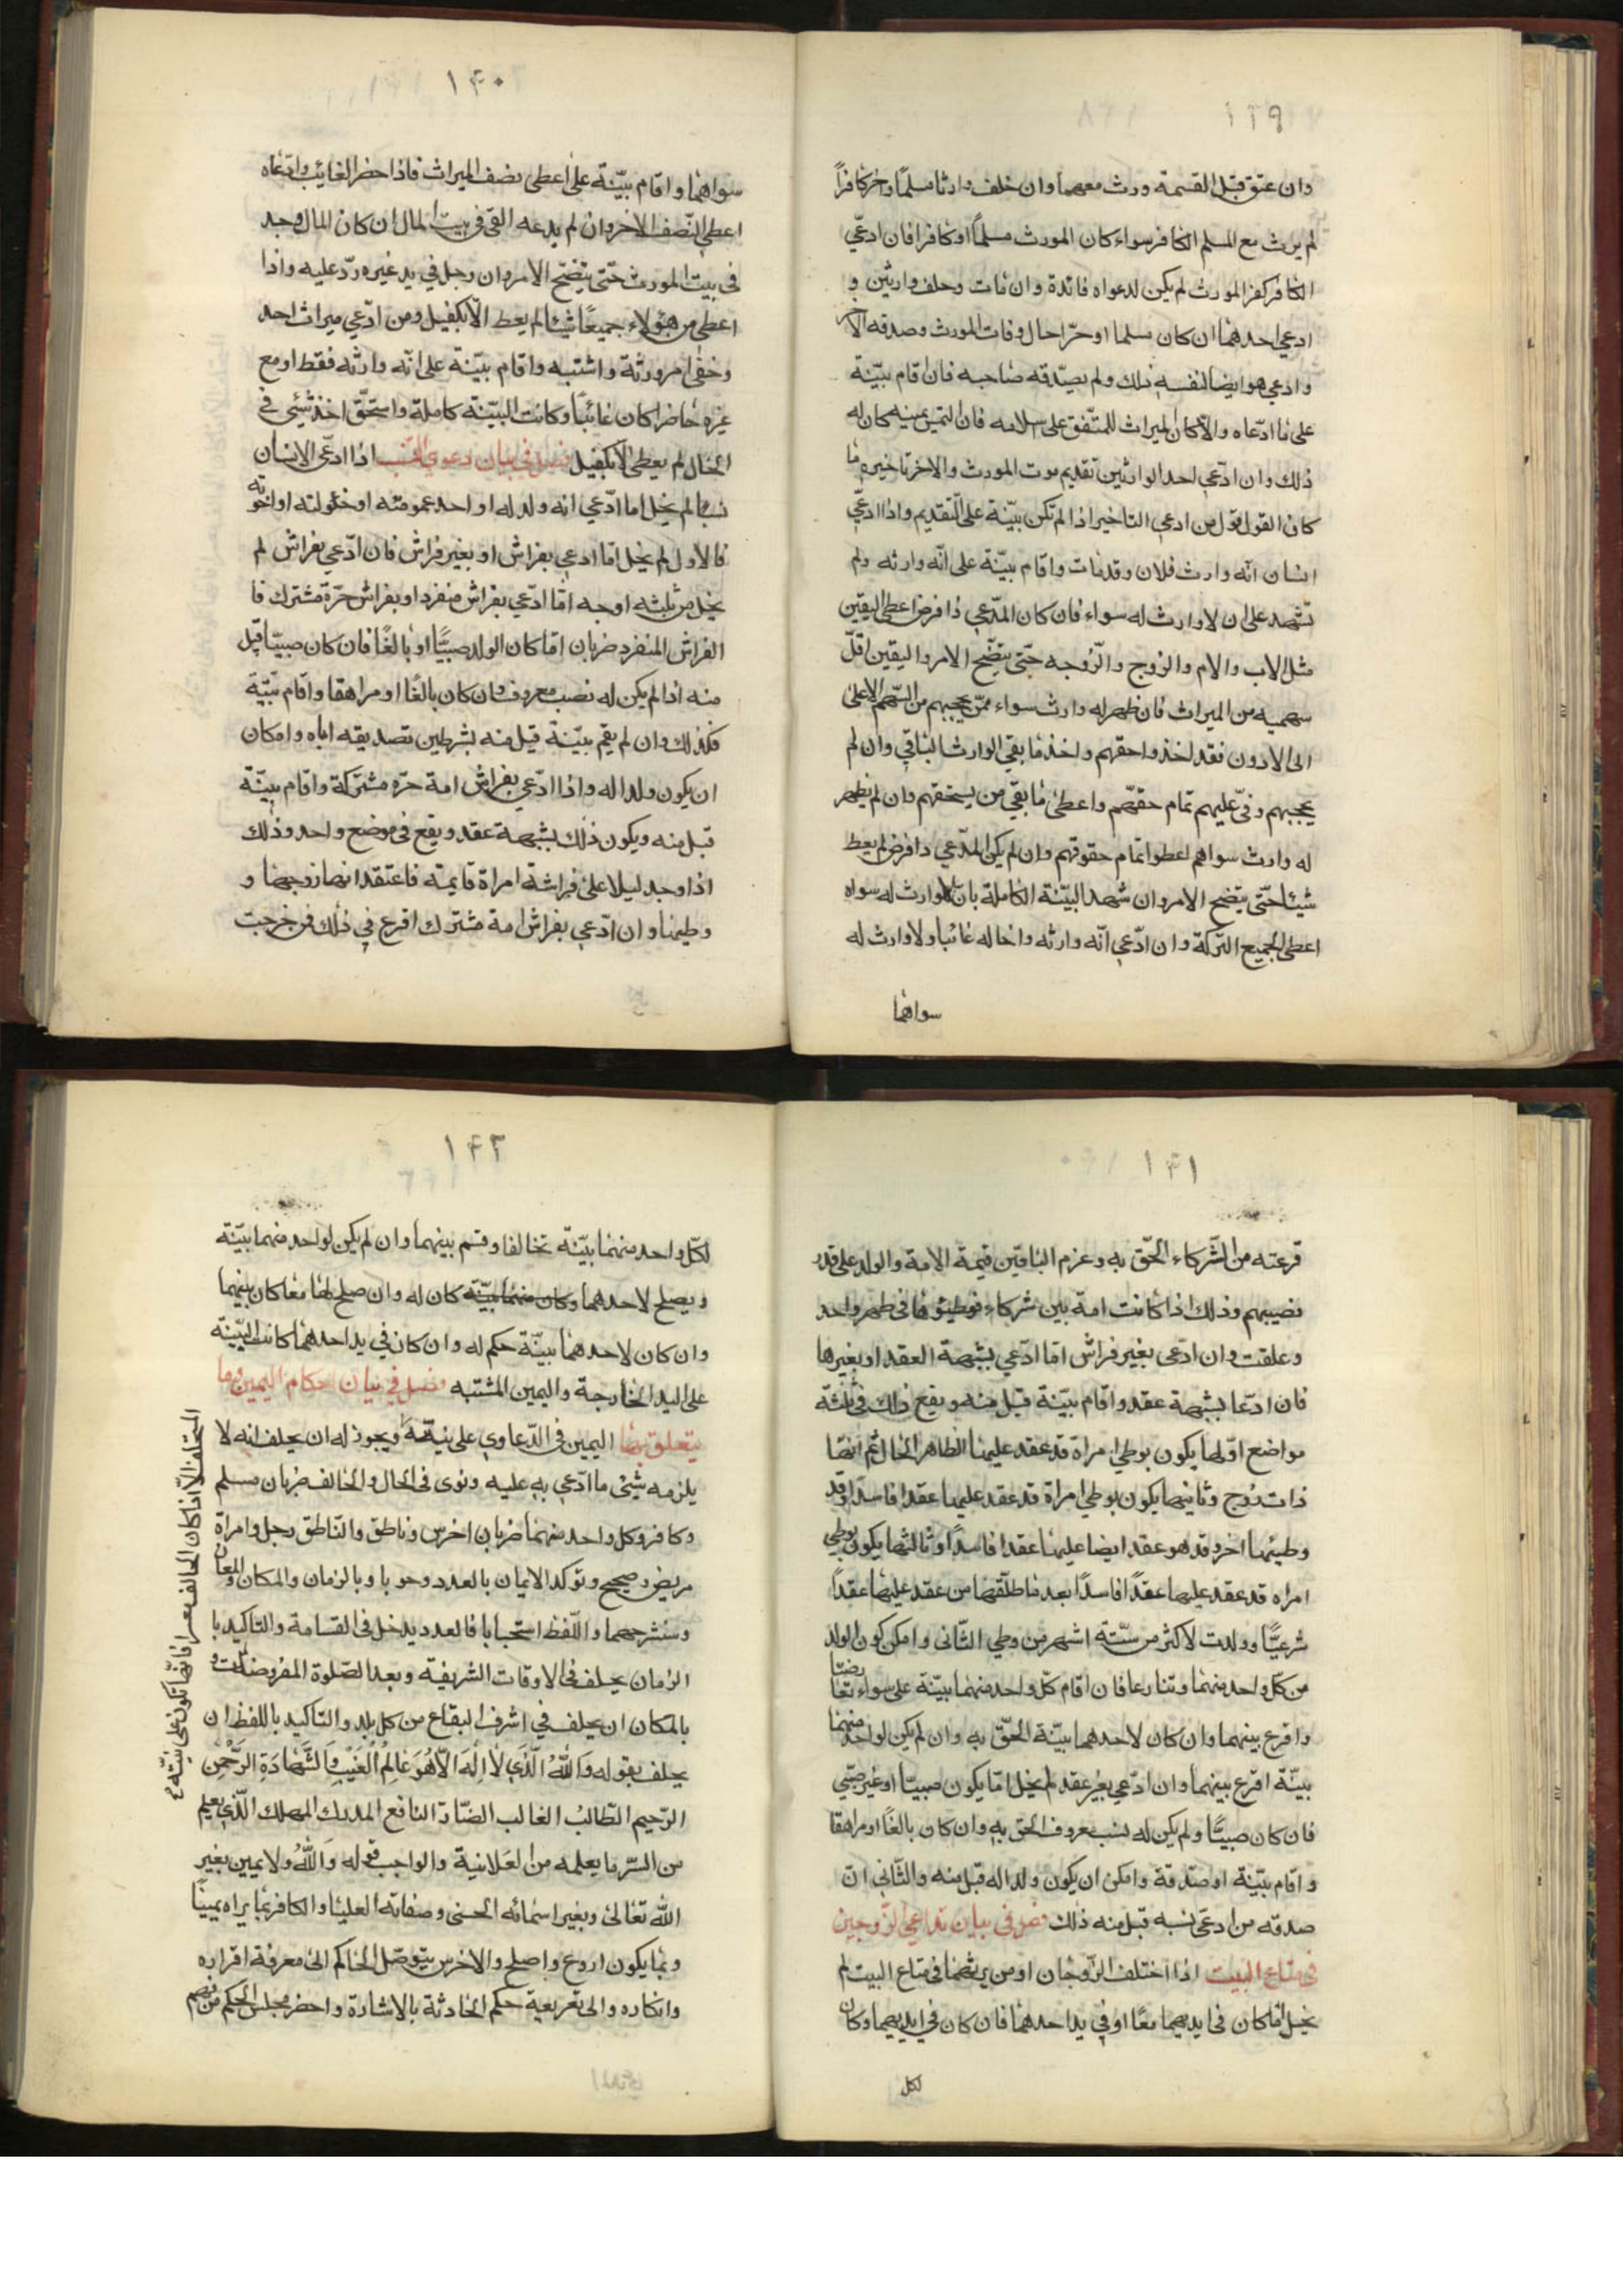 ١٣٩
وان عتق قبل القسمة ورث معهما وان خلف وارثا مسلمًا واخر كافراً
لم يرث مع المسلم الكافر سواء كان المورث مسلماً او كافرا فان ادعّي
الكافر كفر المورث لم يكن لدعواه فائدة وان مات وخلف وارثين و
ادعي احدهما ان كان مسلما او حرّا حال وفات المورث وصدقه الآخر
وادعي هو ايضا لنفسه ذلك ولم يصدّقه صاحبه فان اقام بيّنة
على ما ادّعاه والّا كان الميراث للمتّفق على اسلامه فان التمس يمينه كان له
ذلك وان ادّعي احد الوارثين تقديم موت المورث والاخر تاخيره
كان القول قول من ادعي التاخير اذا لم تكن بيّنة على التّقديم واذا ادعّي
انسان انّه وارث فلان وقد مات واقام بيّنة على انّه وارثه ولم
تشهد على ان لا وارث له سواء فان كان المدّعي ذا فرض اعطى اليقين
مثل الاب والام والزوج والزّوجه حتّى يتضّح الامر واليقين اقلّ
سهميه من الميراث فان ظهر له وارث سواء ممّن يحجبهم من السّهم الاعلى
الى الادون فقد اخذوا حقهم واخذ ما بقي الوارث الباقي وان لم
يحجبهم وفيّ عليهم تمام حقهّم واعطى ما بقي من يستحقهم وان لم يظهر
له وارث سواهم اعطوا تمام حقوقهم وان لم يكن المدّعي ذا فرض لم يعط
شيئا حتّى يتضح الامر وان شهد البيّنة الكاملة بان لا وارث له سواه
اعطى الجميع التّركة وان ادّعي انّه وارثه واخا له غائبا ولا وارث له
سواهما
١٤٠
سواهما واقام بيّنة على اعطى نصف الميراث فاذا حضر الغايب وادّعاه
اعطى النّصف الاخر وان لم يدعه القى في بيت المال ان كان المال وجد
في بيت المورث حتّى يتضّح الامر وان رجل في يد غيره ردّ عليه واذا
اعطى من هؤلاء جميعًا شيئا لم يعط الّا بكفيل ومن ادّعي ميراث احد
وخفى امر ورثة واشتبه واقام بيّنة على انّه وارثه فقط او مع
غيره حاضرا كان غائبًا وكانت البيّنة كاملة واستحّق اخذ شيئ في
الحال لم يعطى الّا بكفيل فصل في بيان دعوي النسب اذا ادعّي الانسان
نسبا لم يخل اما ادّعي انه ولد له او احد عمومته او خئولته او اخوته
فالاول لم يخل امّا ادعي بفراش او بغير فراش فان ادّعي بفراش لم
يخل من ثلثه اوجه امّا ادّعي بفراش منفرد او بفراش حرّة مشترك فا
الفراش المنفرد ضربان امّا كان الولد صبيًّا او بالغًا فان كان صبيّا قبل
منه اذا لم يكن له نصب معروف وان كان بالغًا او مراهقا واقام بيّنة
فكذلك وان لم يقم بيّنة قبل منه بشرطين تصديقه اياه وامكان
ان يكون ولدا له واذا ادّعي بفراش امة حرّه مشتركة واقام بيّنة
قبل منه ويكون ذلك بشبهة عقد ويقع في موضع واحد وذلك
اذا وجد ليلا على فراشه امراة قايمة فاعتقد انها زوجها و
وطيها وان ادّعي بفراش امة مشترك اقرع في ذلك فمن خرجت
١٤١
قرعته من الشّركاء الحّق به وعزم الباقين قيمة الامة والولد على قدر
نصيبهم وذلك اذا كانت امة بين شركاء فوطيوها في طهر واحد
وعلقت وان ادّعى بغير فراش امّا ادّعي بشبهة العقد او بغيرها
فان ادّعا بشبهة عقد واقام بيّنة قبل منه ويقع ذلك في ثلثة
مواضع اوّلها يكون بوطي امراة قد عقد عليها الظاهر الحال ثم انها
ذات زوج وثانيها يكون بوطي امراة قد عقد عليها عقدا فاسدًا وقد
وطيها اخر وقد هو عقد ايضا عليها عقدا فاسدًا وثالثها يكون بوطي
امراه قد عقد عليها عقدًا فاسدًا بعد ما طلّقها من عقد عليها عقدًا
شرعيًّا وولدت لاكثر من ستّة اشهر من وطي الثّاني وامكن كون الولد
من كل واحد منهما وتنازعا فان اقام كلّ واحد منهما بيّنة على سواء تعارضتا
واقرع بينهما وان كان لاحدهما بيّنة الحّق به وان لم يكن لواحد منهما
بيّنة اقرع بينهما وان ادّعي بغير عقد لم يخل امّا يكون صبيّا او غير صبّي
فان كان صبيًّا ولم يكن له نسب معروف الحق به وان كان بالغًا او مراهقا
واقام بيّنة او صدّقة وامكن ان يكون ولدا له قبل منه والثّاني انّ
صدقه من ادعّى نسبه قبل منه ذلك فصل في بيان تداعي الزّوجين
في متاع البيت اذا اختلف الزّوجان او من يرثهما في متاع البيت لم
يخل امّا كان في ايديهما معًا او في يد احدهما فان كان في ايديهما وكان
لكل
١٤٢
لكلّ واحد منهما بيّنة تحالفا وقسم بينهما وان لم يكن لواحد منهما بيّنة
ويصلح لاحدهما وكان منهما بيّنة كان له وان صلح لهما معًا كان بينهما
وان كان لاحدهما بيّنة حكم له وان كان في يد احدهما كانت البيّنة
على اليد الخارجة واليمين المشتبه فصل في بيان احكام اليمين وما
يتعلق بها اليمين في الدّعاوي على نية ويجوز له ان يحلف انه لا
يلزمه شيئ ما ادّعي به عليه ونوى في الحال والحالف ضربان مسلم
وكافر وكل واحد منهما ضربان اخرس وناطق والنّاطق رجل وامراة
مريض وصحيح وتوكد الايمان بالعدد وحوبا وبالزمان والمكان واللعان
وسنشرحهما واللّفظ استحبابا فالعدد يدخل في القسامة والتاكيد با
الزمان يحلف في الاوقات الشريفية وبعد الصّلوة المفروضات و
بالمكان ان يحلف في اشرف البقاع من كل بلد والتاكيد باللفظ ان
يحلف بقوله وَاللهُ الَّذَي لاٰ اِلٰهَ الّاٰ هُوَ عَالِمُ الْغَيْبِ وَالشَّهٰادَةِ الرَحّمٰنِ
الرّحيم الطّالبُ الغالب الضّارّ النافع المدرك المهلك الّذي يعلم
من السّر ما يعلمه من العَلانية والواجب قوله وَاللهُ ولا يمين بغير
الله تعالى وبغير اسمائه الحسنى وصفاته العليا والكافر بما يراه يمينًا
وبما يكون اروع واصلح والاخرس يتوصّل الحاكم الى معرفة اقراره
وانكاره والى تعريعية حكم الحادثة بالاشارة واحضر مجلس الحكم من فهم
المستحلف الّا اذا كان الحالف معسرا فانها تكون على نيّته